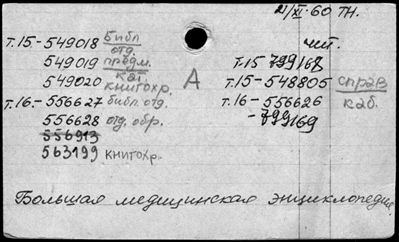 21/XI-60 тн.
т.15-549018 библ. отд.
549019 предм. кат.
549020 книгохр.
т.16-556627 библ. отд.
556628 отд. обр.
556913
563199 книгохр.
А
чит.
т.15 799168
т.15-548805 справ. каб.
т.16-556626
-799169
Большая медицинская энциклопедия.